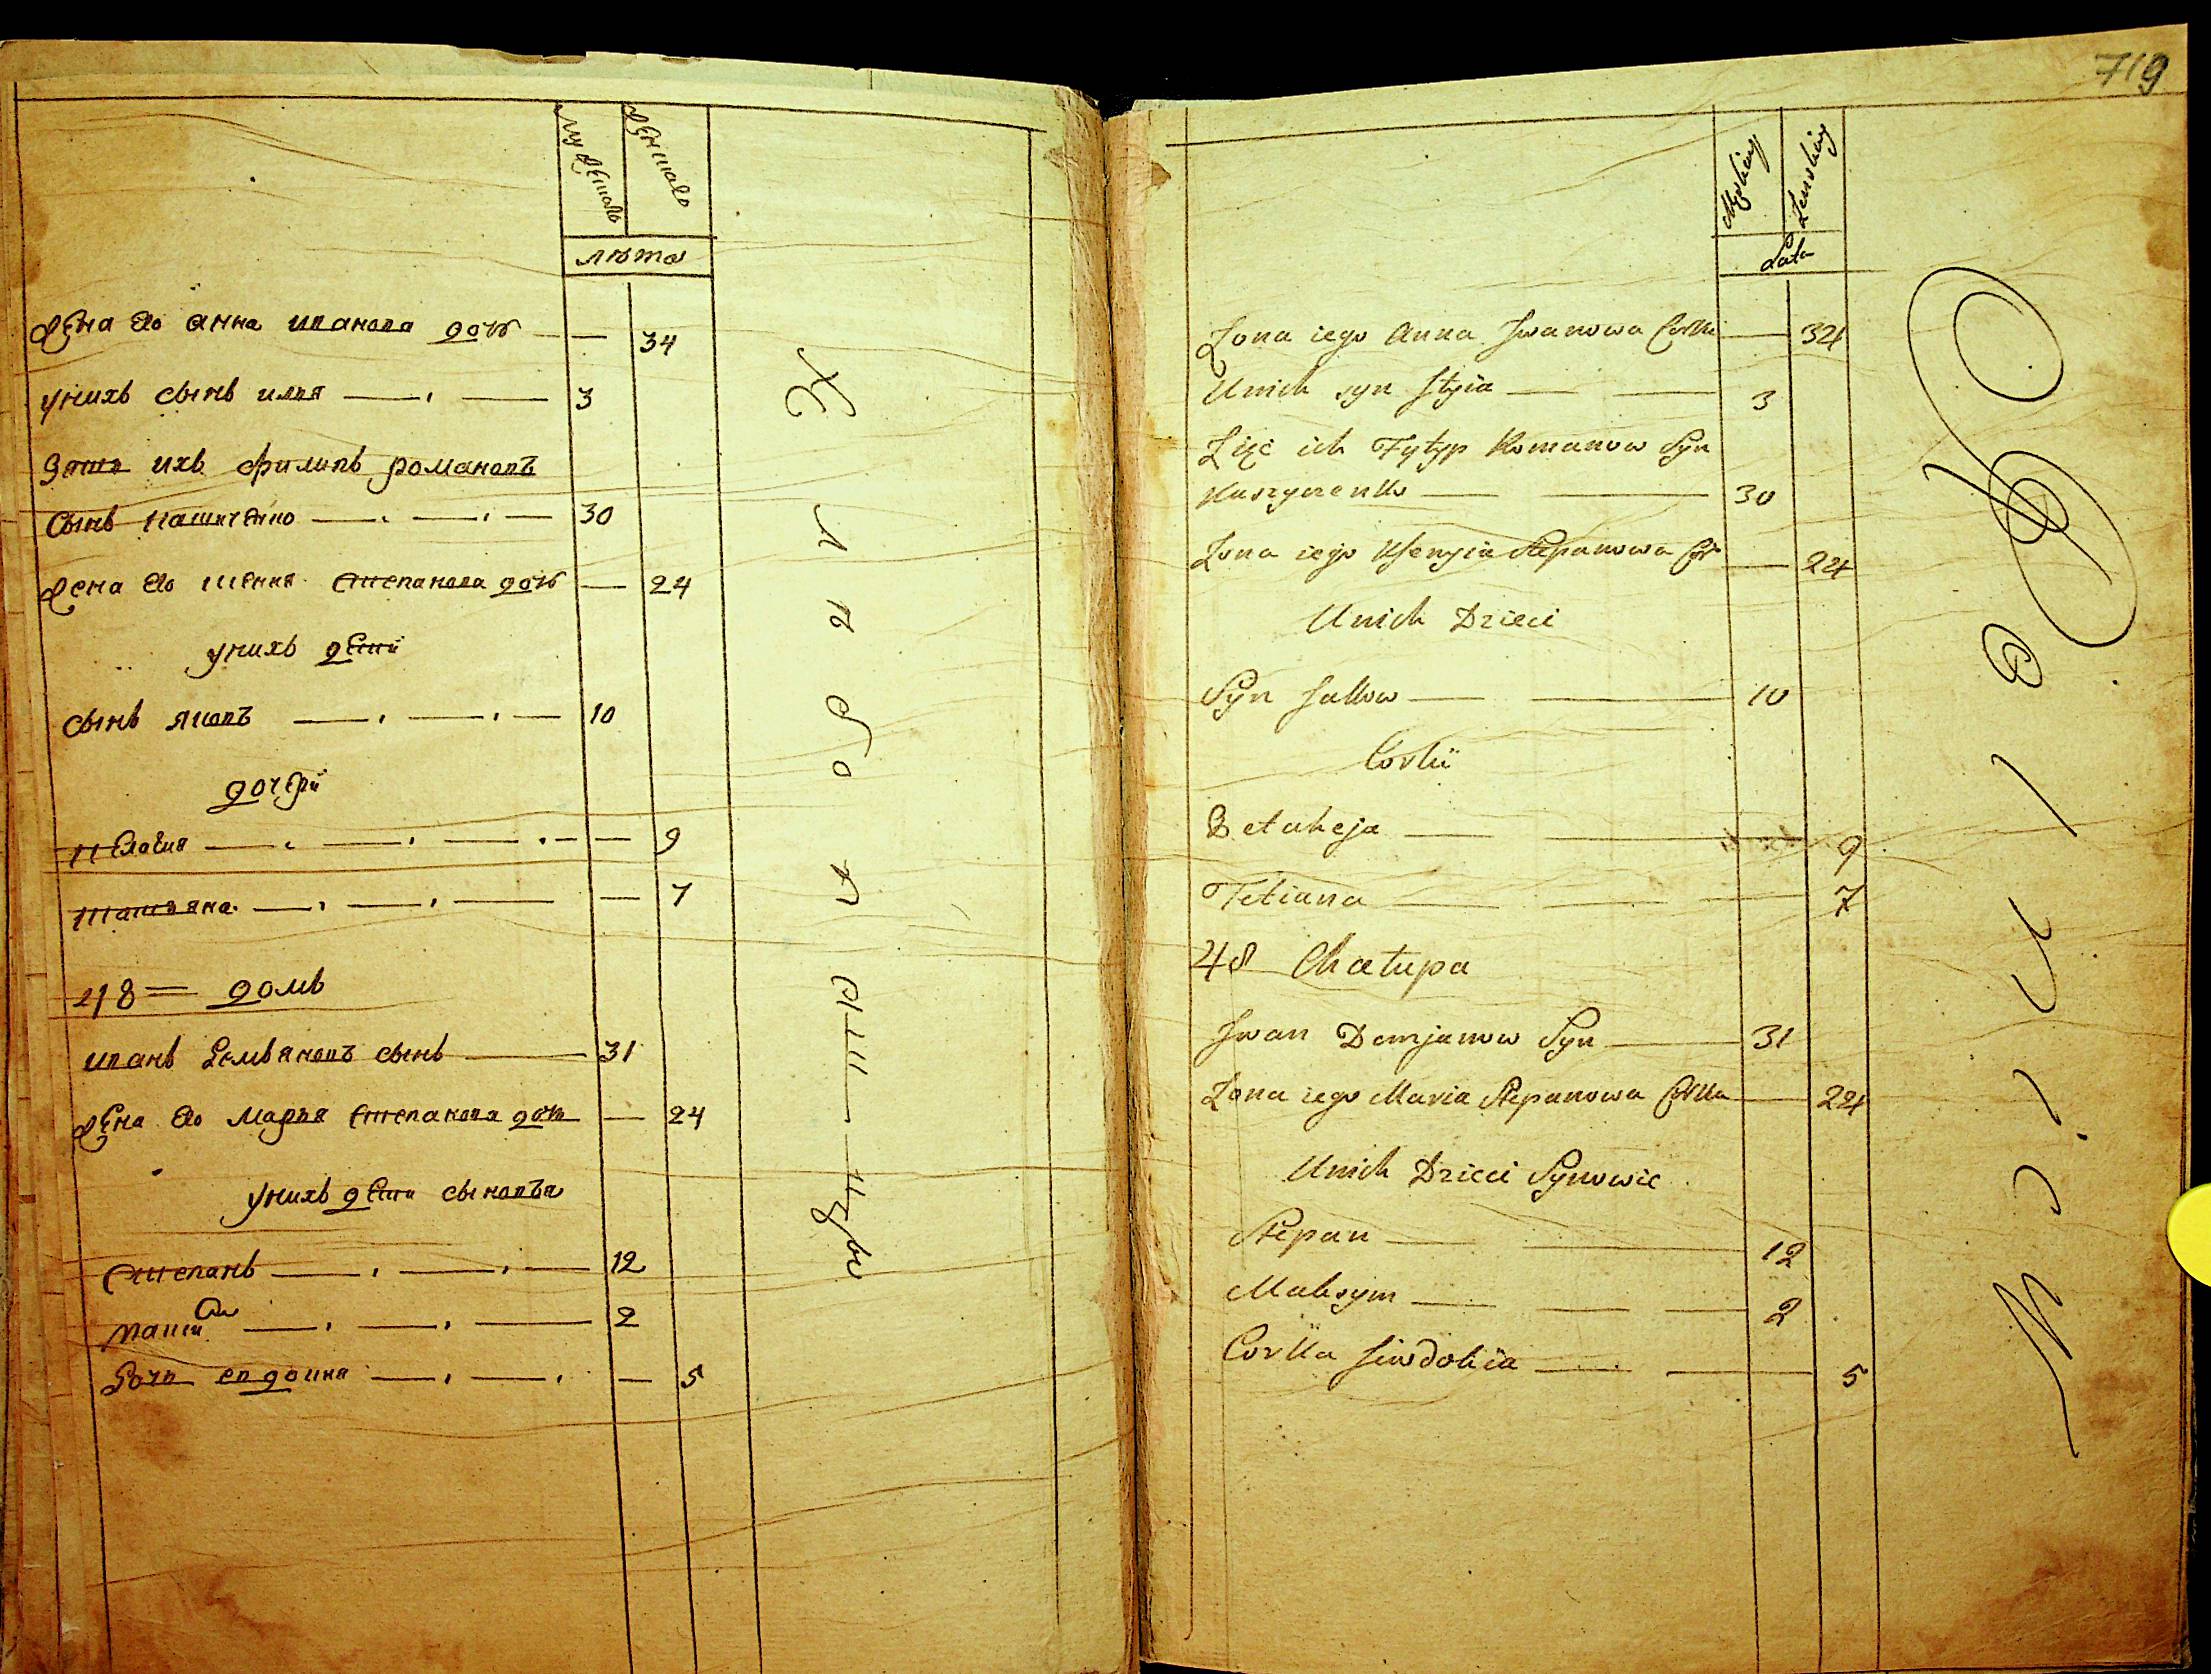 719
мужеска
женска
лѣта
жена его анна иванова дочь — 34
унихъ сынъ илья — 3
зять ихъ филипъ романовъ
сынъ — 30
жена его ксения степанова дочь — 24
унихъ дети
сынъ яковъ — 10
дочери
пелагия — 9
татьяна — 7
48 домъ
иванъ демьяновъ сынъ — 31
жена его марья степанова дочь — 24
унихъ дети сыновья
степанъ — 12
— 2
дочь евдокия — 5
Męskiey
Żenskiey
Lata
Żona iego Anna Iwanowa Corka — 34
Unich syn Ilyia — 3
Zięć ich Fylyp Romanow Syn
— 30
Żona iego Ksenyia Stepanowa Cor — 24
Unich Dzieci
Syn Jakow — 10
Corkii
9
Tetiana — 7
48 Chałupa
Iwan Demjanow Syn — 31
Żona iego Maria Stepanowa Corka — 24
Unich Dzieci Synowie
Stepan — 12
Maksym — 2
Corka Jewdokia — 5